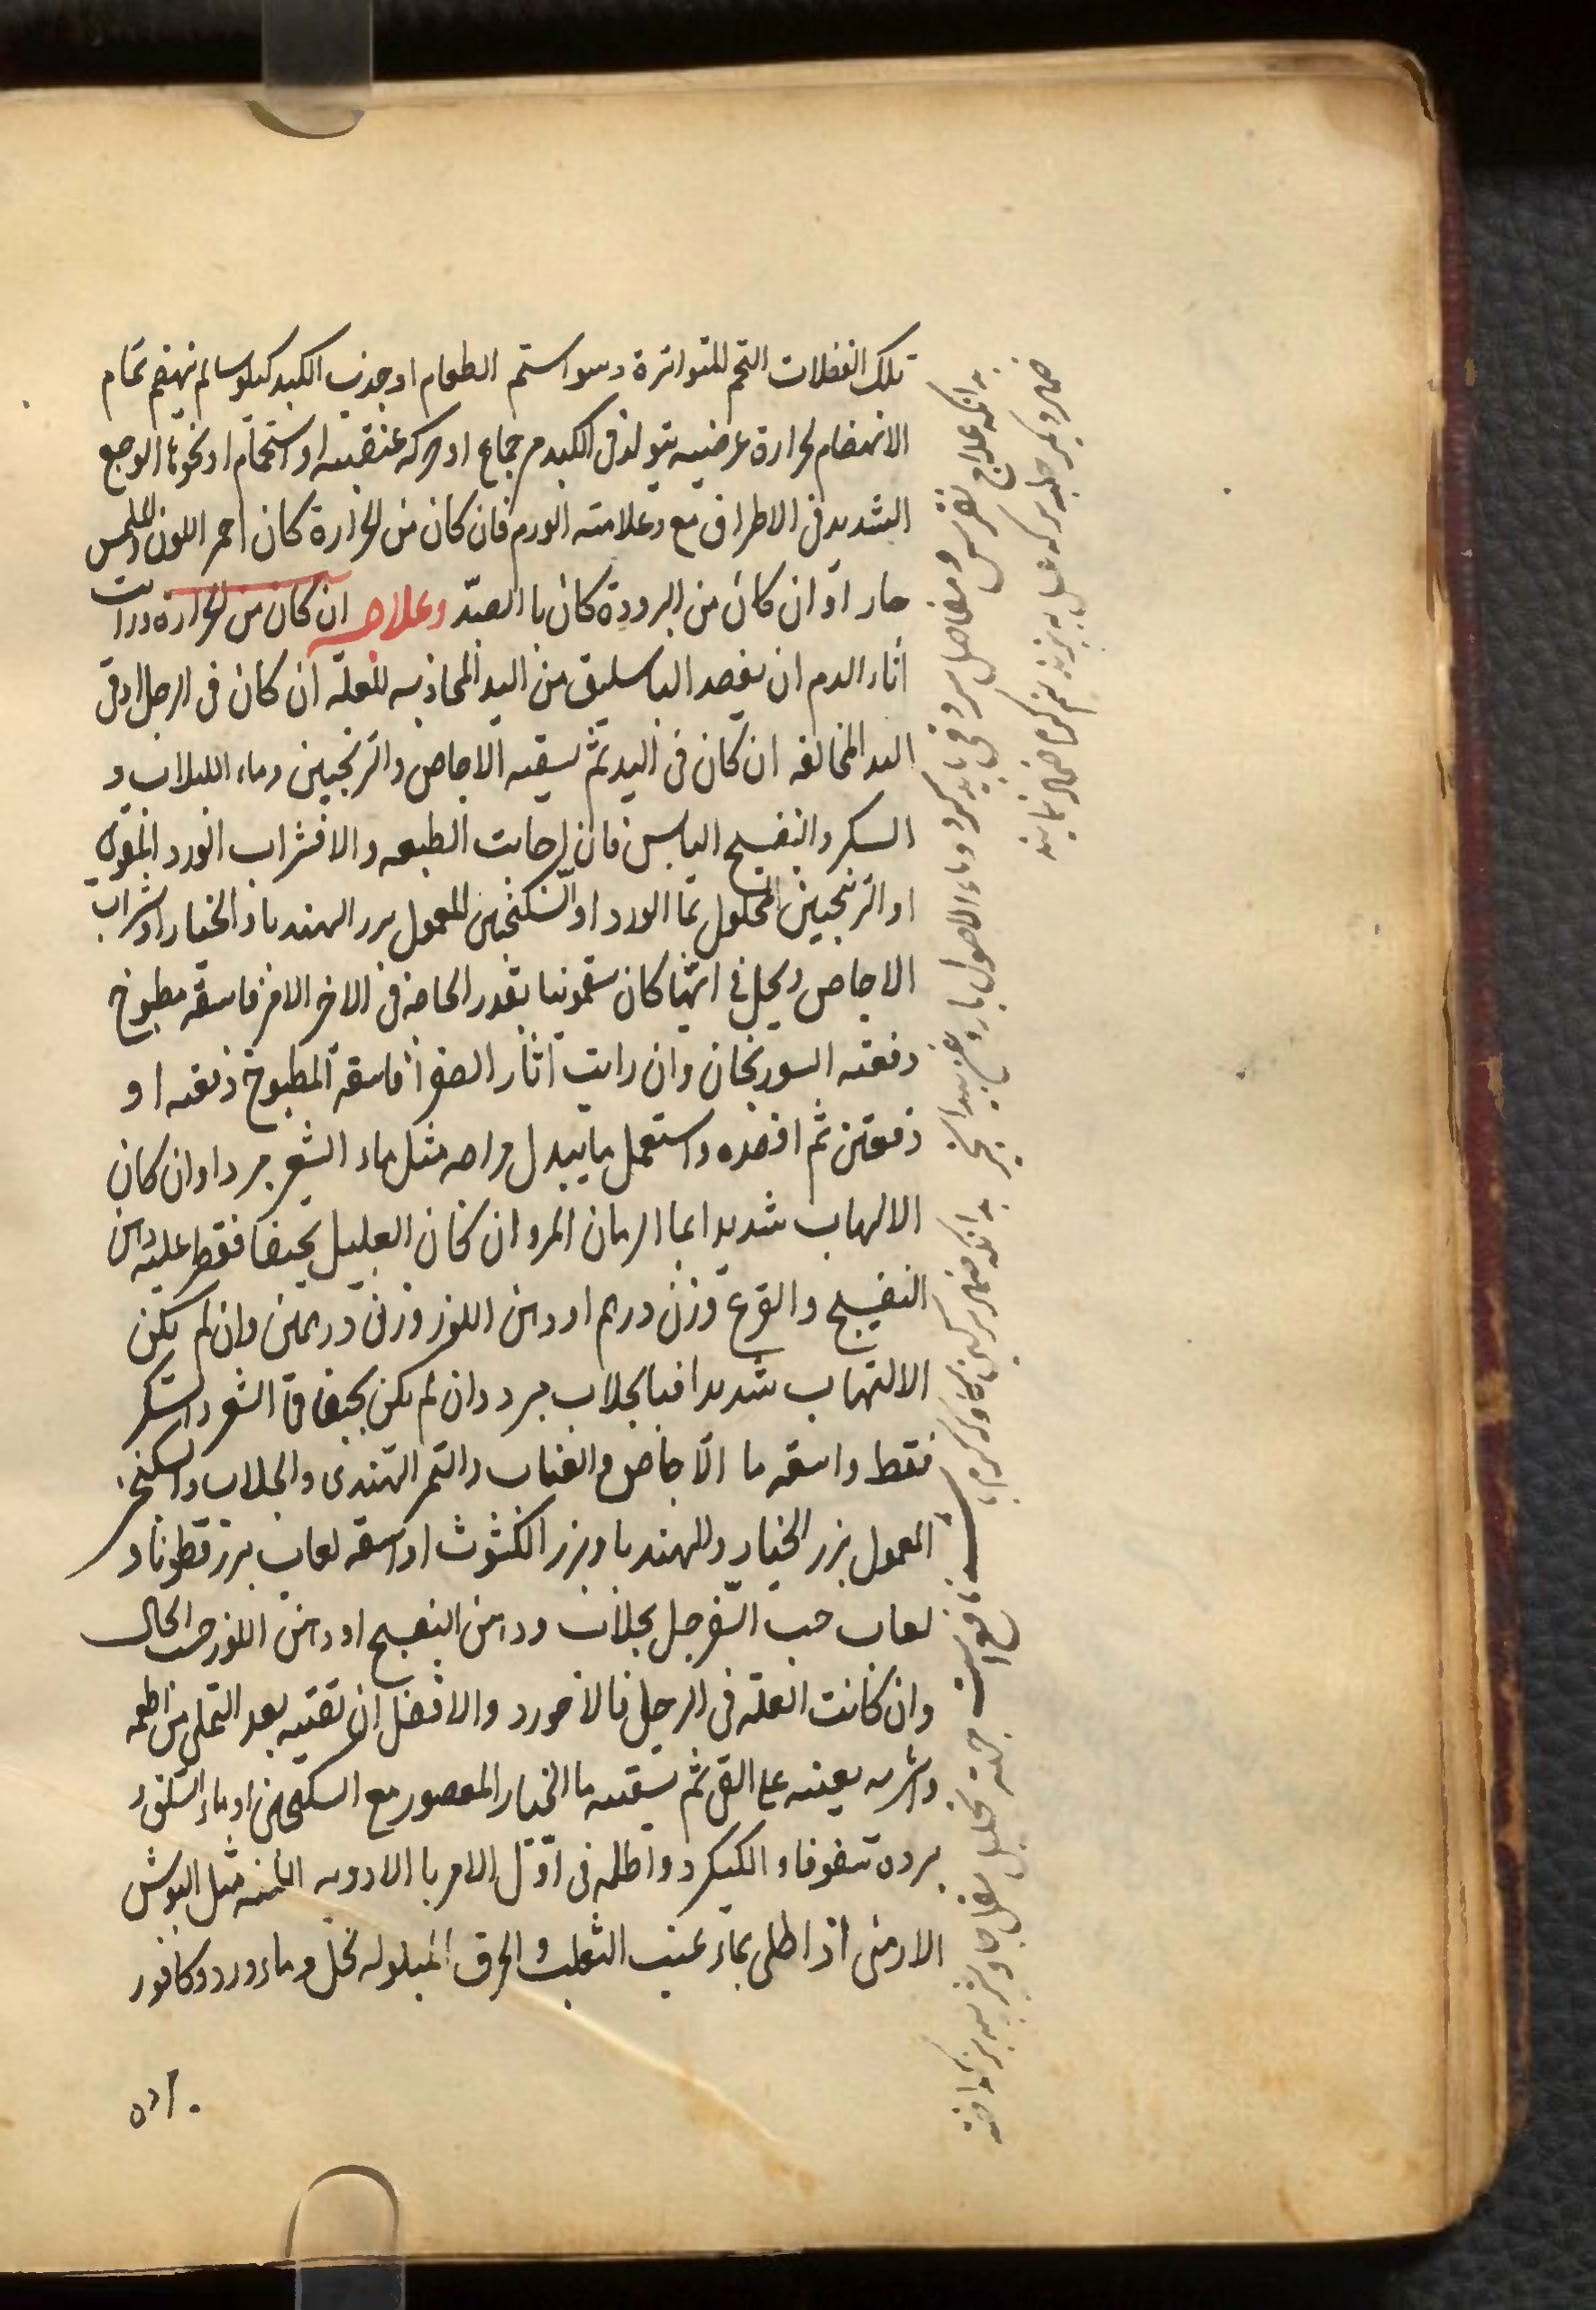 تلك الفضلات التخم المتواترة وسوا ستم الطعام او جذب الكبد كيلوسا لم ينهضم تمام
الانهضام لحرارة عرضيه يتولد فى الكبد من جماع او حركه عنيفه او استحمام او نحوها الوجع
الشديد فى الاطراف مع وعلامته الورم فان كان من الحرارة كان احمر اللون والملمس
حار او ان كان من البرودة كان با الضدّ وعلاجه ان كان من الحرارة ورات
اثار الدم ان يفصد الباسليق من اليد المحاذيه للعلة ان كان فى الرجل او فى
اليد المخالفه ان كان فى اليد ثم يسقيه الاجاص والترنجبين وماء اللبلاب و
السكر والبنفسج اليابس فان اجابت الطبيعه والا فشراب الورد المقوى
او الترنجبين المحلول بما الورد او السكنجبين المعمول ببزر الهندبا والخيار او شراب
الاجاص ويحل فى ايتها كان سقمونيا بقدر الحاجة فى الاخر الامر فاسقه مطبوخ
دفعته السورنجان وان رايت اثار الصفرا فاسقه المطبوخ دفعه او
دفعتين ثم افصده واستعمل ما يبدل مزاجه مثل ماء الشعير مبردا وان كان
الالهاب شديدا بما الرمان المر وان كان العليل نحيفا فقطر عليه دهن
البنفسج والقرع وزن درهم او دهن اللوز وزن درهمين وان لم يكن
الالتهاب شديدا فبالجلاب مبرد وان لم يكن نحيفا فما الشعير والسكر
فقط واسقه ما الاجاص والعناب والتمر الهندى والجلاب والسكنجبين
المعمول ببزر الخيار والهندبا وبزر الكشوث او اسقه لعاب بزر قطونا و
لعاب حب السفرجل بجلاب ودهن البنفسج او دهن اللوز حسب الحال
وان كانت العلة فى الرجل فالاجود والافضل ان تقيه بعد التملى من اطعمه
واشربه يعينه على القى ثم يسقيه ما الخيار المعصور مع السكنجبين او ماء
برده والكبكر واطله فى اوّل الامر با الادويه اللينه مثل البوش
الارمنى اذا طلى بماء عنب الثعلب والخرق المبلوله بخل وماء ورد وكافور
بدانكه علاج نقرس و مفاصل سرد قى بايد كرد وماء الاصول با روغن بيد انجير
بدانكه ضماد سركين كاو كه كرم باشد نافع است جهة تحليل
ضماد ديكر حلبه در سركه عسل به پزند نيم كرم ضماد نمايند